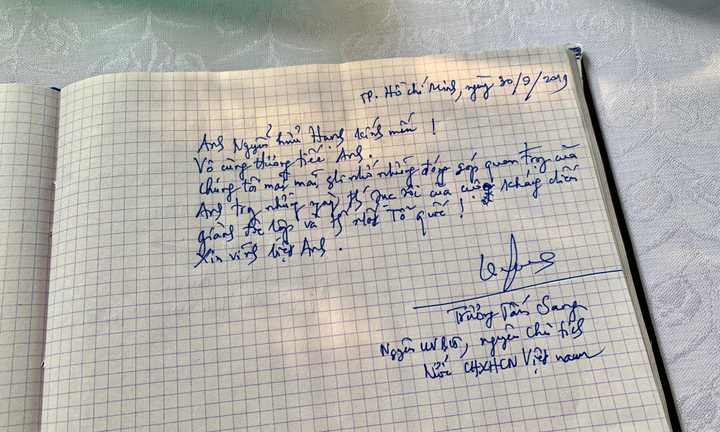 TP. Hồ Chí Minh, ngày 30/9/2019
Anh Nguyễn Hữu Hạnh kính mến!
Vô cùng thương tiếc Anh.
Chúng tôi mãi mãi ghi nhớ những đóng góp quan trọng của
Anh trong những ngày cuối của cuộc kháng chiến
giành độc lập và thống nhất Tổ quốc!
Xin vĩnh biệt Anh.
Trương Tấn Sang
Nguyên UV BCT, nguyên Chủ tịch
Nước CHXHCN Việt Nam